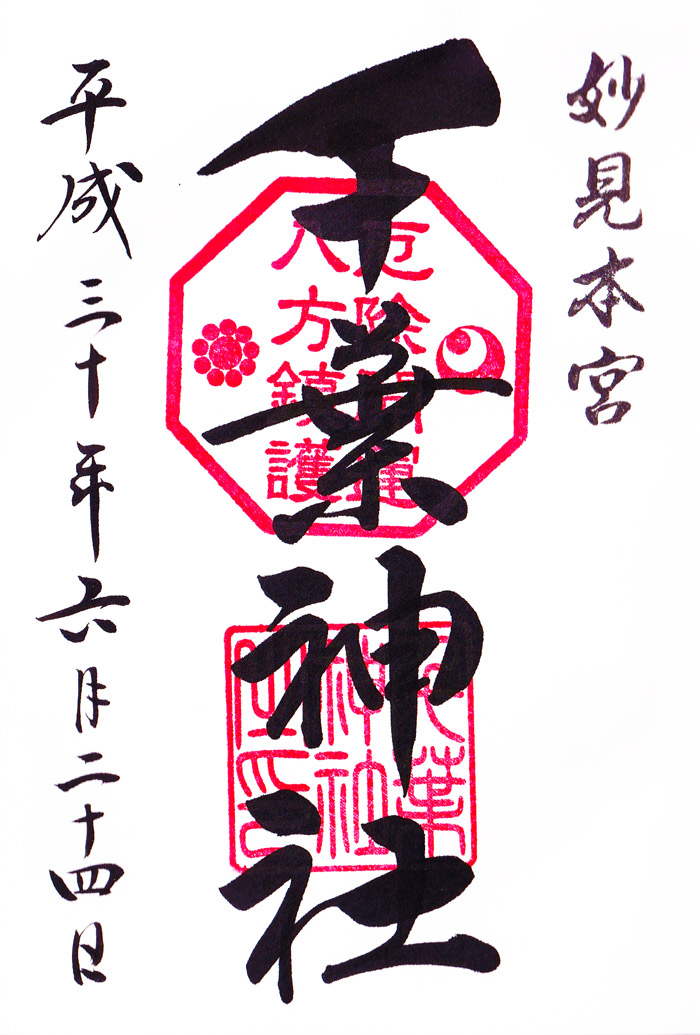 妙見本宮
千葉神社
厄除開運
八方鎮護
千葉
神社
平成三十年六月二十四日